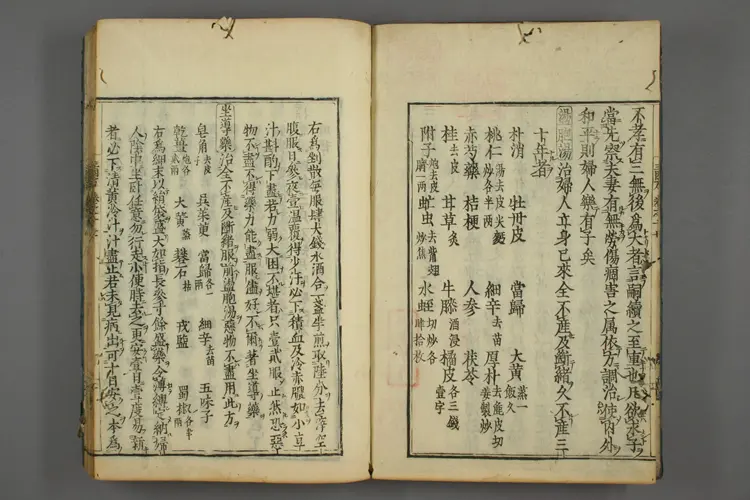 不孝有三無後爲大者言嗣續之至重也凡欲求子
當先察夫妻有無勞傷痼害之属依方調治使内外
和平則婦人樂有子矣
蕩胞湯治婦人立身已來全不産及斷緒久不産三
十年者
朴消 牡丹皮 當歸 大黄蒸一飯久
桃仁湯去皮尖麩炒各半両 細辛去苗 厚朴去麁皮切姜製炒
赤芍藥 桔梗 人參 茯苓
桂去皮 甘草炙 牛膝酒浸 橘皮各三錢壹字
附子炮去皮臍一両 虻虫去翼翅炒焦 水蛭切炒各肆拾枚
右爲剉散每服肆大錢水酒合一盞半煎取陸分去滓空
腹服日參夜壹温覆得少汗必下積血及冷赤膿如小豆
汁斟酌下盡若力弱大困不堪者只壹貳服止然恐惡
物不盡不得藥力能盡服儘好不爾著坐導藥
坐導藥治全不産及斷緒服前盪胞湯惡物不盡用此方
皂角去皮子 呉茱萸 當歸各一両 細辛去苗 五味子
乾薑炮各貳両 大黄蒸 礬石枯 戎鹽 蜀椒各半両
右爲細末以絹袋盛大如指長參寸餘盛藥令滿纏定納婦
人陰中坐卧任意勿行走小便時去之更安壹日壹度易新
者必下清黄冷汁汁盡止若未見病出可十日安之本爲